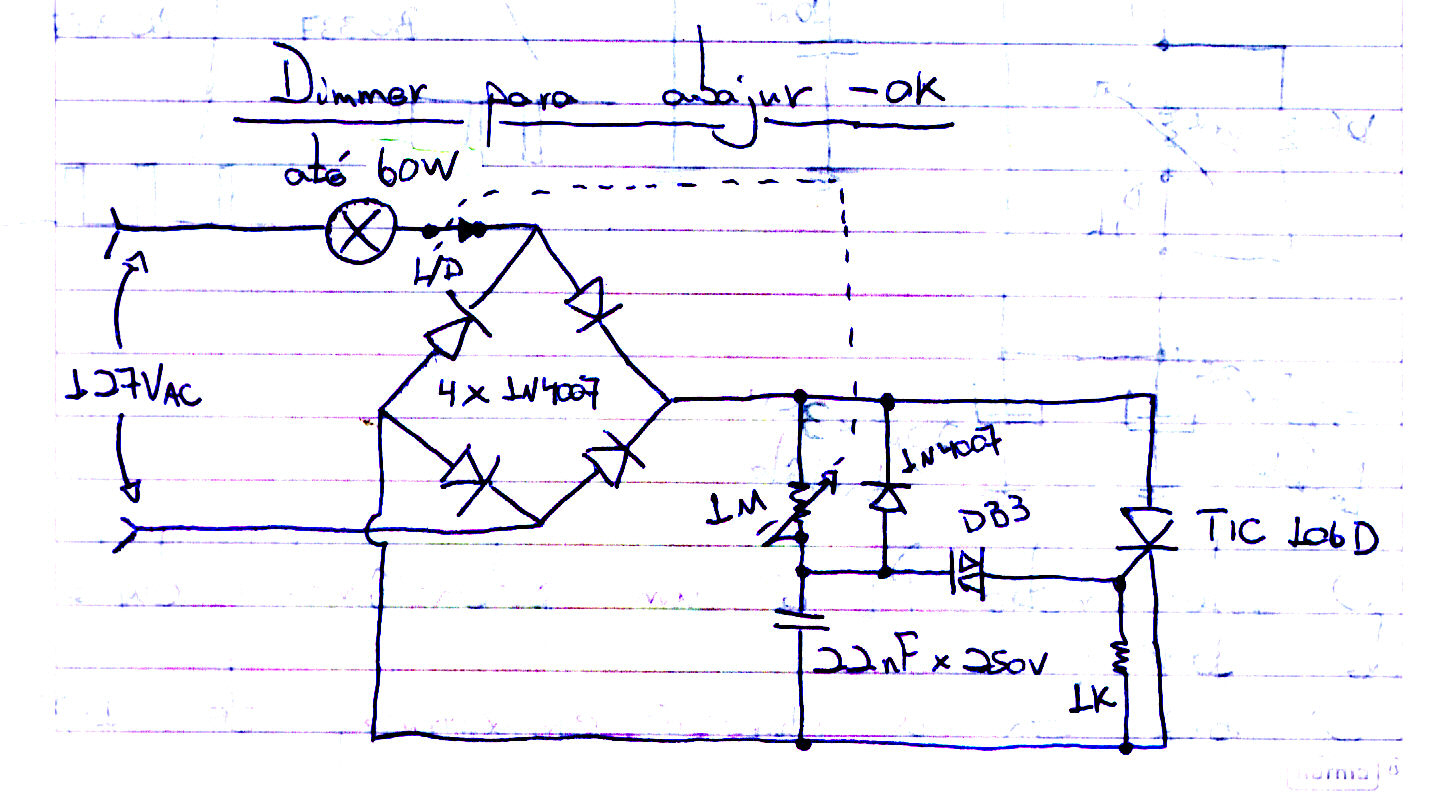 Dimmer para abajur - OK
até 60W
L/D
127VAC
4 x 1N4007
1N4007
1M
DB3
TIC 106D
22nF x 250V
1K